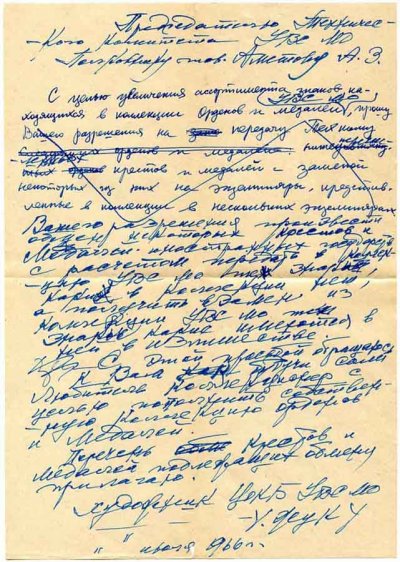 Председателю Техничес-
-кого комитета УВС МО
Полковнику тов. Аистову А. З.
С целью увеличения ассортимента знаков на-
ходящихся в коллекции Орденов и медалей УВС МО, прошу
Вашего разрешения на передачу Техкому
орденов и медалей
крестов и медалей с заменой
некоторых из них на экземпляры, представ-
ленные в коллекции в нескольких экземплярах
Вашего разрешения произвести
обмен некоторых крестов и
медалей иностранных государств
с расчетом передать в коллек-
цию УВС МО те знаки
каких в коллекции нет,
а получить взамен, из
коллекции УВС МО те
знаки какие имеются в
ней в излишестве.
С этой просьбой обращаюсь
к Вам будучи сам
любитель коллекционер с
целью пополнить собствен-
ную коллекцию орденов
и медалей.
Перечень крестов и
медалей подлежащих обмену
прилагаю.
художник ЦЭКБ УВС МО
" " июля 1966 г.